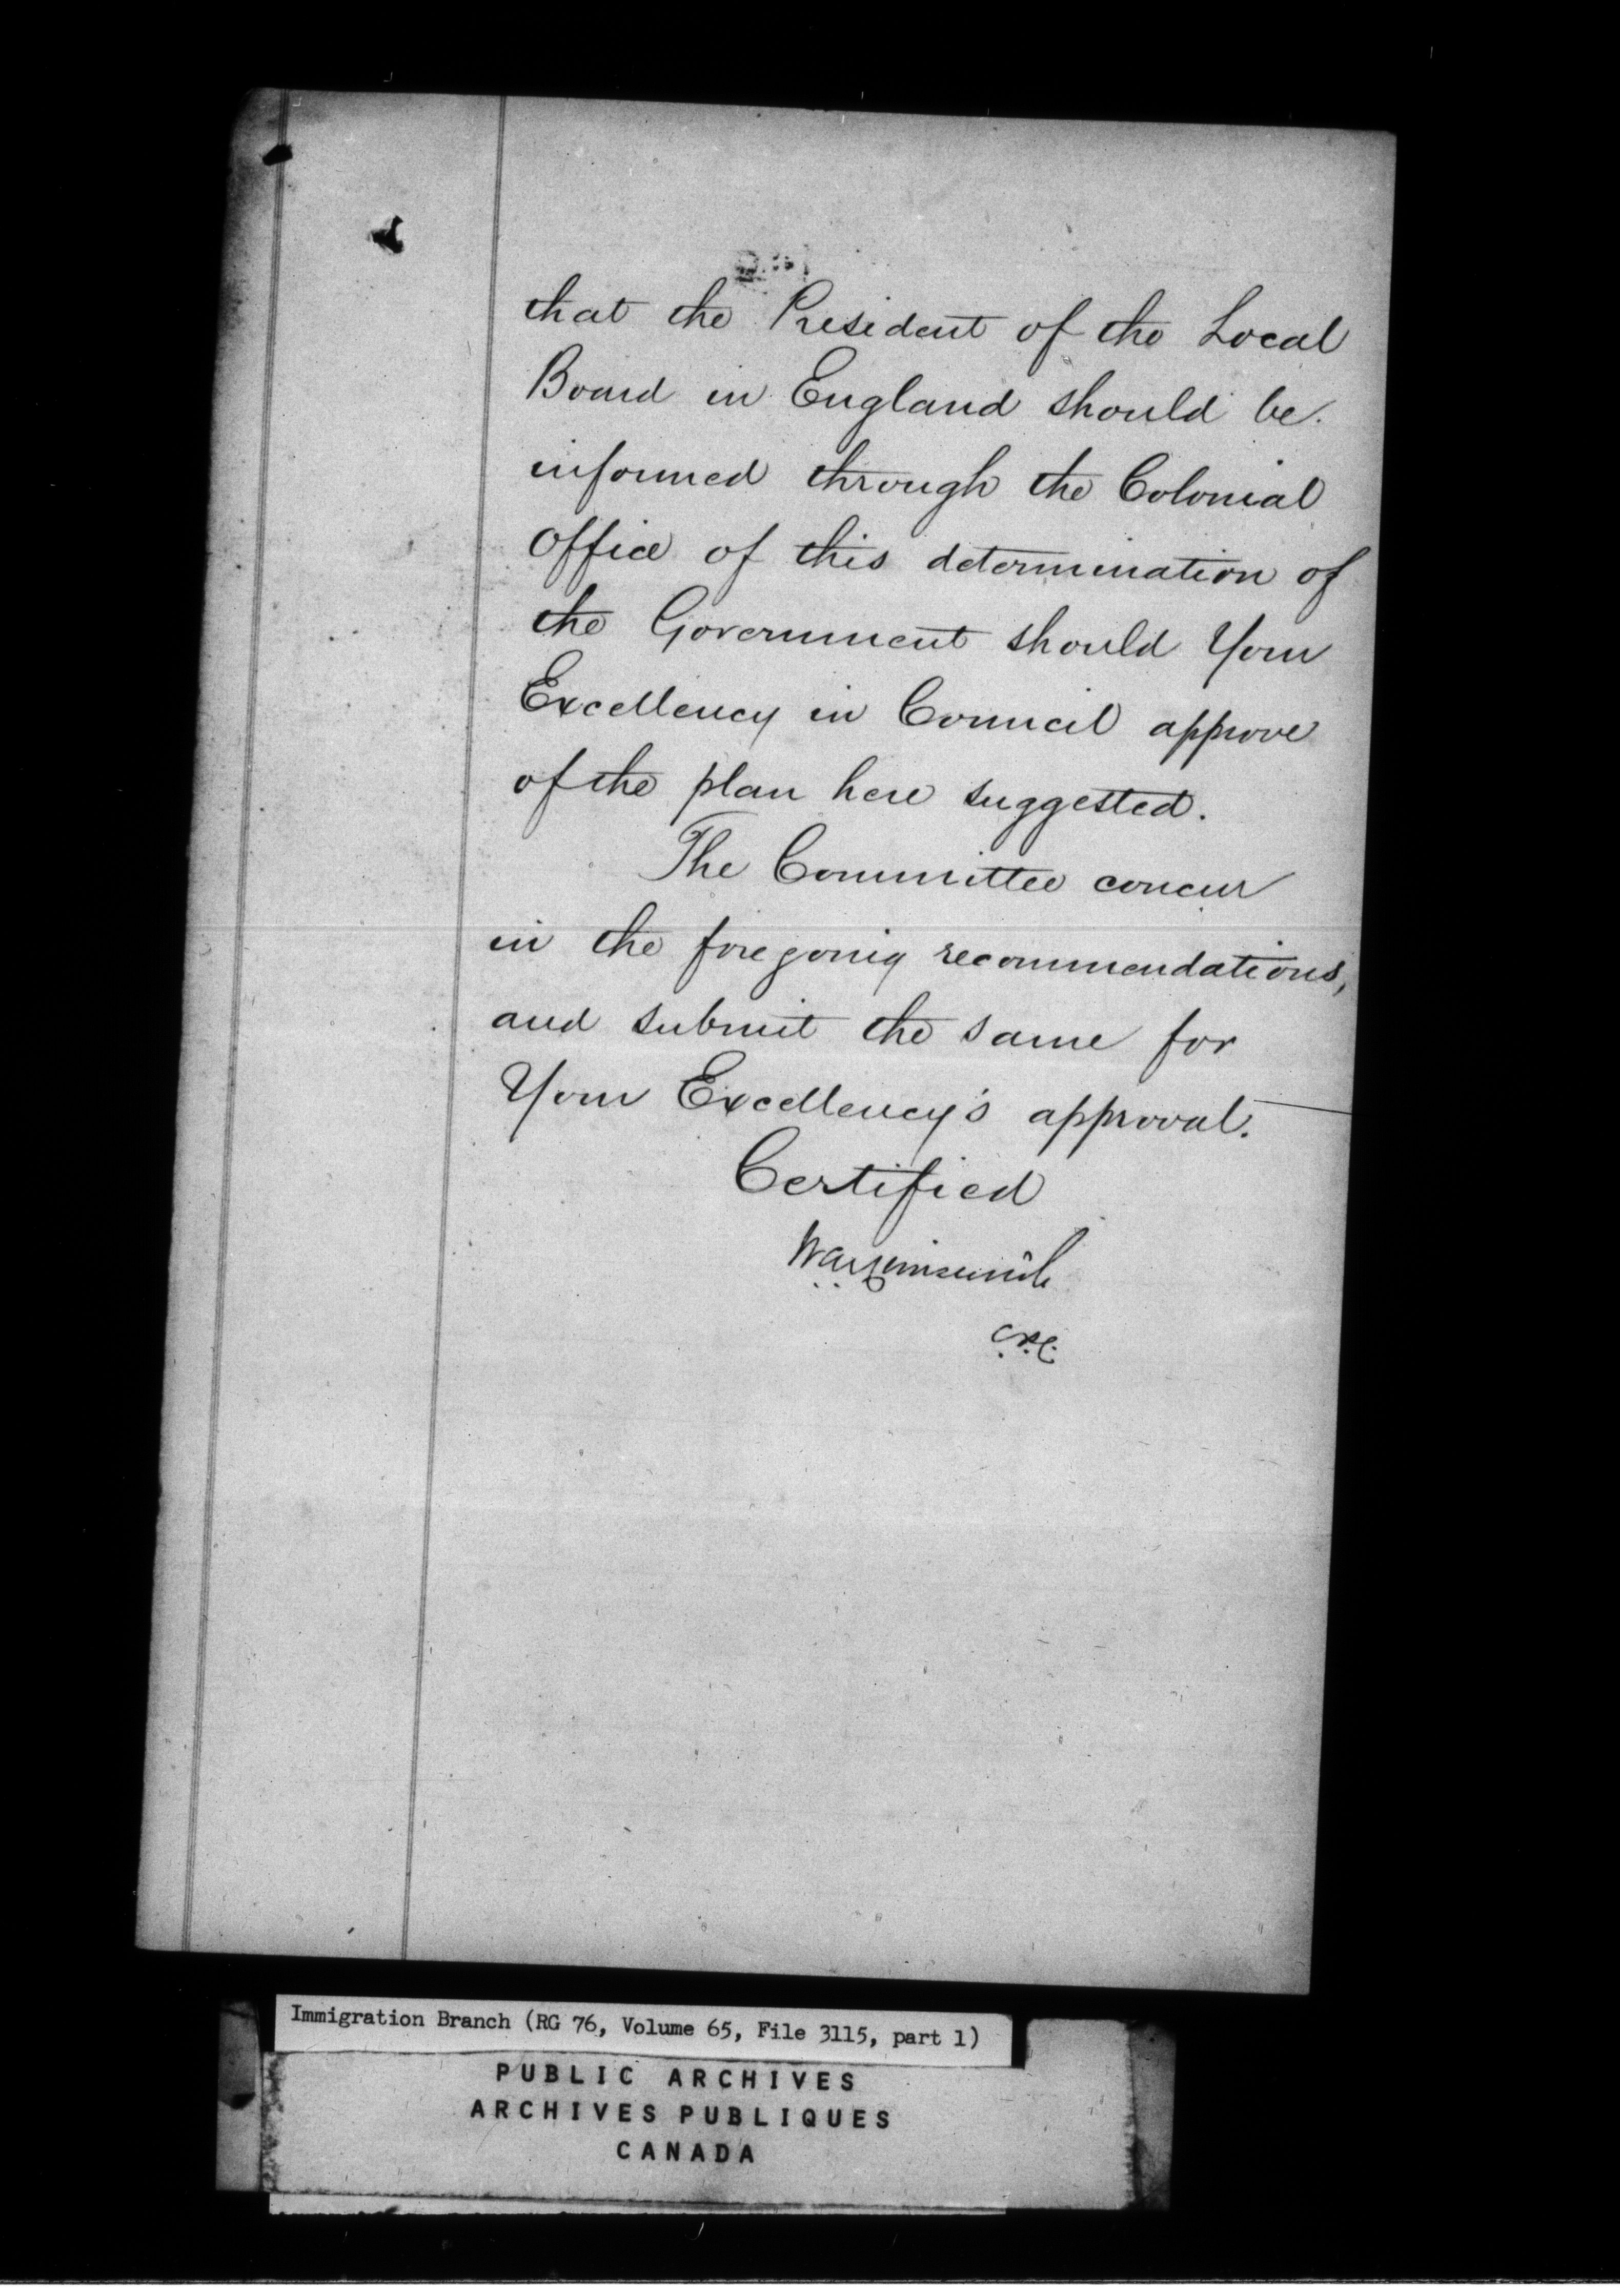 that the President of the Local
Board in England should be
informed through the Colonial
Office of this determination of
the Government should Your
Excellency in Council approve
of the plan here suggested.
The Committee concur
in the foregoing recommendations,
and submit the same for
Your Excellency's approval.
Certified
C.P.C.
Immigration Branch (RG 76, Volume 65, File 3115, part 1)
PUBLIC ARCHIVES
ARCHIVES PUBLIQUES
CANADA